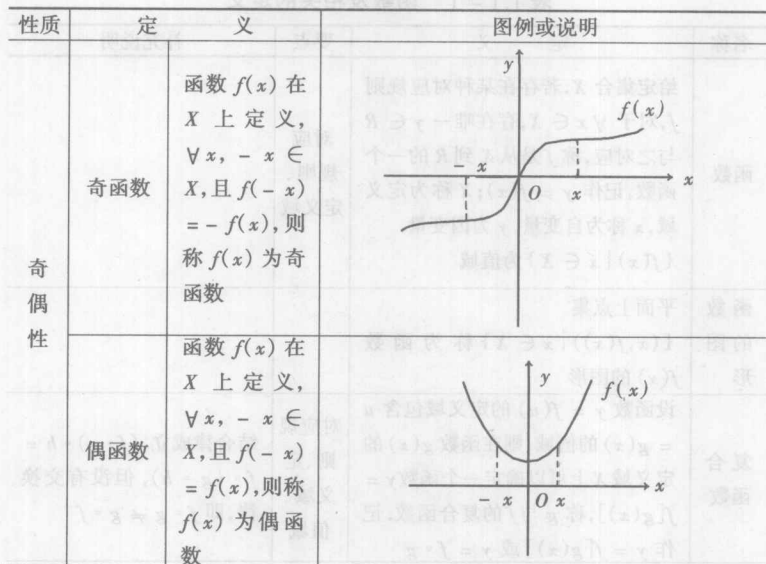 性质 定 义 图例或说明
奇
偶
性
奇函数
函数 f(x) 在
X 上 定 义,
∀x, - x ∈
X,且 f(- x)
= - f(x),则
称 f(x) 为奇
函数
y
f(x)
- x
O
x
x
偶函数
函数 f(x) 在
X 上 定 义,
∀x, - x ∈
X,且 f(- x)
= f(x),则称
f(x) 为偶函
数
y
f(x)
- x O x
x